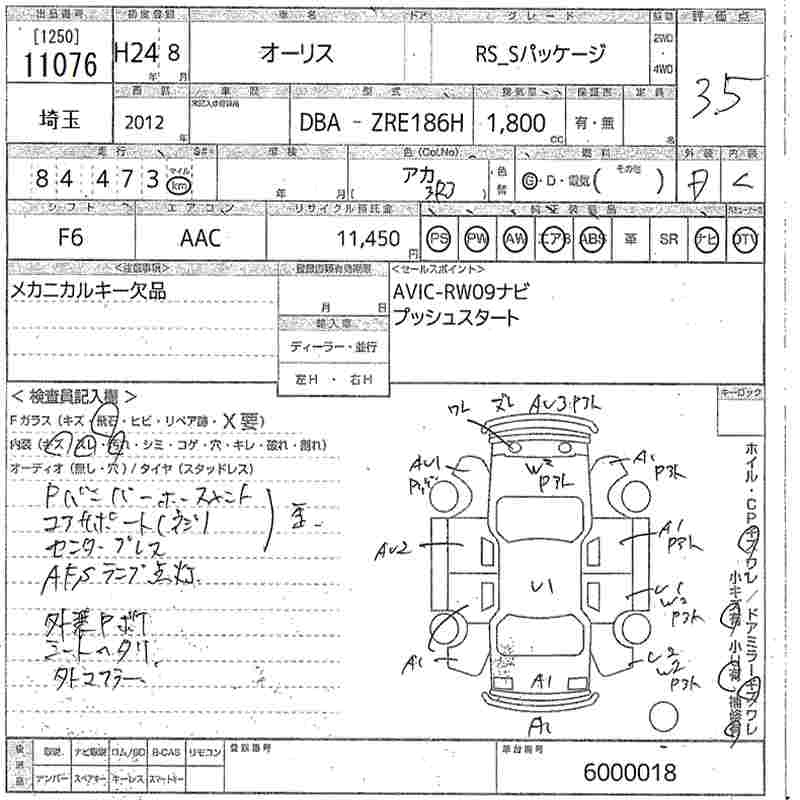 出品番号 初度登録 車名 ドア グレード 駆動 評価点
[1250]
11076 H24 8 オーリス RS_Sパッケージ 2WD 3.5
年 月 4WD
西暦 車歴 型式 排気量 保証書 定員
埼玉 2012 年 DBA - ZRE186H 1,800 cc 有・無 名
走行 車検 色(Col,No) 燃料 外装 内装
84,473 マイル km 年 月 アカ 3R3 色替 G・D・電気( その他 ) C
シフト エアコン リサイクル預託金 純正装備品
F6 AAC 11,450 円 PS PW AW エアB ABS 革 SR ナビ DTV
<注意事項> 登録書類有効期限 <セールスポイント>
メカニカルキー欠品 月 日 AVIC-RW09ナビ
輸入車 プッシュスタート
ディーラー・並行
左H・右H
< 検査員記入欄 > キーロック
Fガラス(キズ・飛石・ヒビ・リペア跡・X要)
内装(キズ・スレ・汚れ・シミ・コゲ・穴・キレ・破れ・割れ)
オーディオ(無し・穴)/タイヤ(スタッドレス)
コアサポート(ネジ)
センタープレス
AFSランプ点灯
シートヘタリ
ワレ ズレ AU3 Pタト
AU1 W2 Pタト A1 Pタト
AU2 A1 Pタト
U1 U1 W2 Pタト
A1 A1 U2 W2 Pタト
A2
ホイル・CPキズワレ/ドアミラーキズワレ
小キズ有/小凹有・補修有
後送品 取説 ナビ取説 ロム/SD B-CAS リモコン 登録番号 車台番号
テンパー スペアキー キーレス スマートキー 6000018